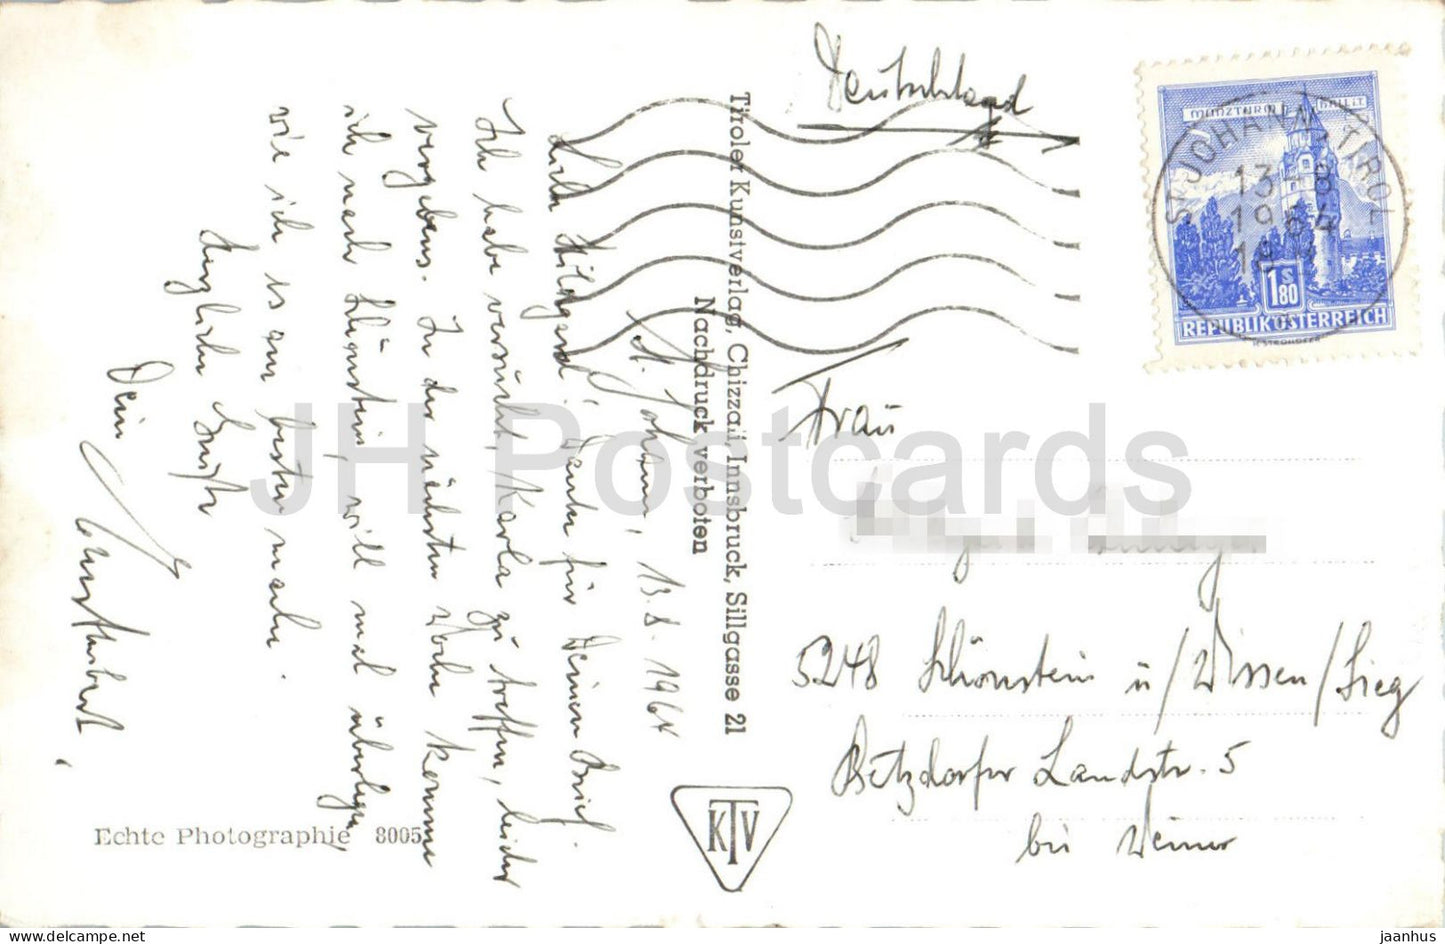 St. Johann, 13.8.1964
Liebe Hildegard! Danke für Deinen Brief.
Ich habe versucht, Karla zu treffen, leider
vergebens. In der nächsten Woche komme
ich nach Schönstein, will mal überlegen,
wie ich es am besten mache.
Herzliche Grüße
Dein
Tiroler Kunstverlag, Chizzali, Innsbruck, Sillgasse 21
Nachdruck verboten
KTV
Echte Photographie 8005
Deutschland
MÜNZTURM HALL I.T.
1.80
REPUBLIK ÖSTERREICH
ST. JOHANN, TIROL
13-8
1964
Frau
5248 Schönstein ü/Wissen/Sieg
Betzdorfer Landstr. 5
bei Weimer
JH Postcards
jaanhus